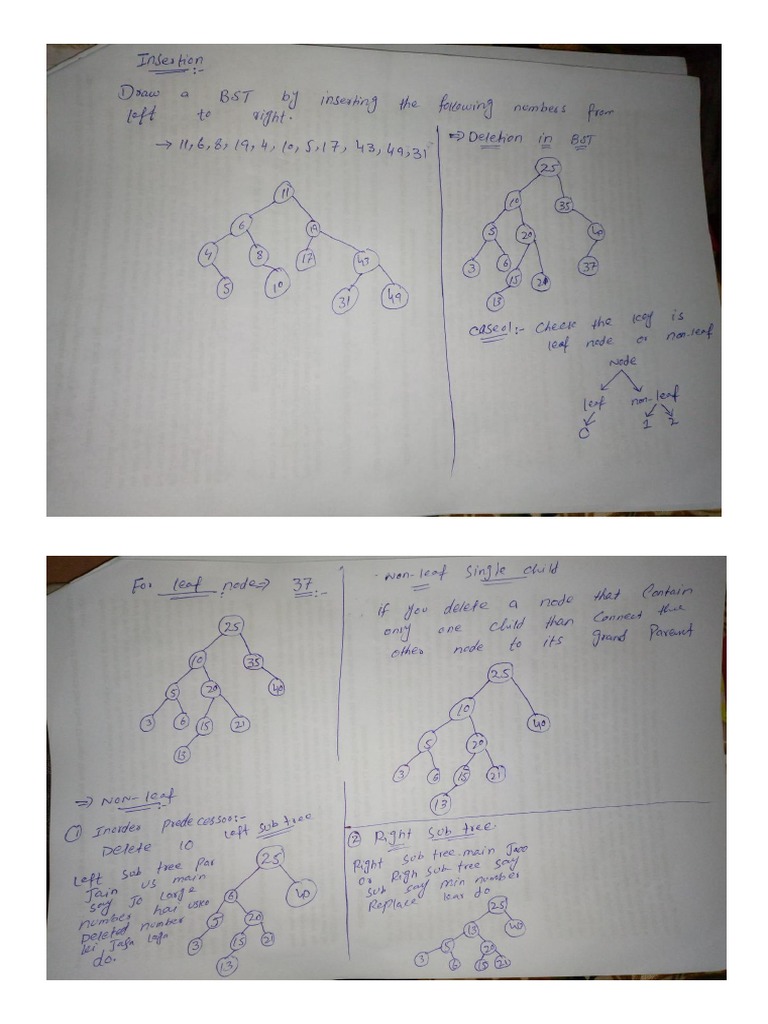 Insertion :-
① Draw a BST by inserting the following numbers from
left to right.
→ 11, 6, 8, 19, 4, 10, 5, 17, 43, 49, 31
11
6 19
4 8 17 43
5 10 31 49
⇒ Deletion in BST
25
10 35
5 20 40
3 6 15 21 37
13
case01:- Check the key is
leaf node or non-leaf
Node
leaf non-leaf
0 1 2
For leaf node ⇒ 37 :-
25
10 35
5 20 40
3 6 15 21
13
Non-leaf Single child
if you delete a node that contain
only one child than connect the
other node to its grand Parent
25
10 40
5 20
3 6 15 21
13
⇒ NON-leaf
① Inorder Predecessor:-
Delete 10 left sub tree
Left sub tree par
Jain us main
say Jo large
number hai usko
Deleted number
ki Jaga laga
do.
25
6 40
5 20
3 15 21
13
② Right Sub tree.
Right sub tree main Jaoo
or Righ sub tree say
sub say min number
Replace kar do
25
13 40
5 20
3 6 15 21